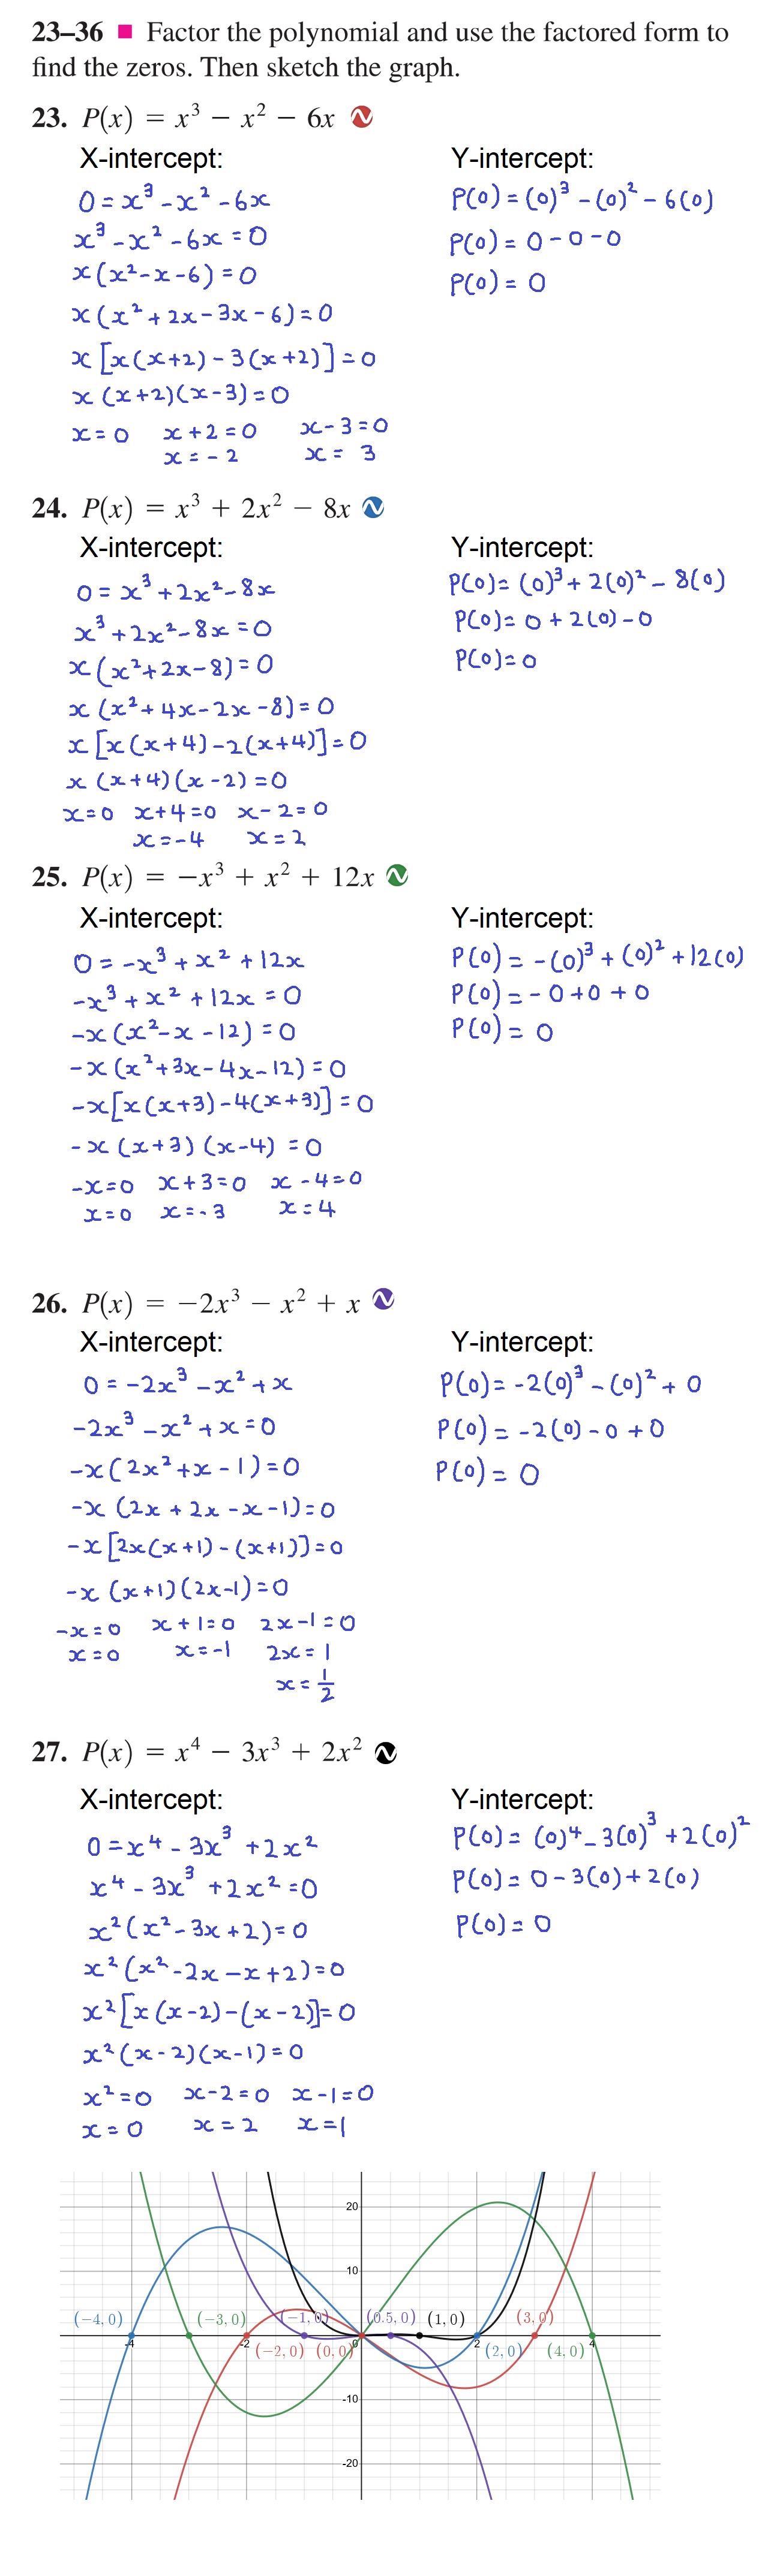 23–36 ■ Factor the polynomial and use the factored form to
find the zeros. Then sketch the graph.
23. P(x) = x³ − x² − 6x
X-intercept:
0 = x³ - x² - 6x
x³ - x² - 6x = 0
x(x² - x - 6) = 0
x(x² + 2x - 3x - 6) = 0
x[x(x+2) - 3(x+2)] = 0
x(x+2)(x-3) = 0
x = 0 x+2 = 0 x-3 = 0
x = -2 x = 3
Y-intercept:
P(0) = (0)³ - (0)² - 6(0)
P(0) = 0 - 0 - 0
P(0) = 0
24. P(x) = x³ + 2x² − 8x
X-intercept:
0 = x³ + 2x² - 8x
x³ + 2x² - 8x = 0
x(x² + 2x - 8) = 0
x(x² + 4x - 2x - 8) = 0
x[x(x+4) - 2(x+4)] = 0
x(x+4)(x-2) = 0
x = 0 x+4 = 0 x-2 = 0
x = -4 x = 2
Y-intercept:
P(0) = (0)³ + 2(0)² - 8(0)
P(0) = 0 + 2(0) - 0
P(0) = 0
25. P(x) = −x³ + x² + 12x
X-intercept:
0 = -x³ + x² + 12x
-x³ + x² + 12x = 0
-x(x² - x - 12) = 0
-x(x² + 3x - 4x - 12) = 0
-x[x(x+3) - 4(x+3)] = 0
-x(x+3)(x-4) = 0
-x = 0 x+3 = 0 x-4 = 0
x = 0 x = -3 x = 4
Y-intercept:
P(0) = -(0)³ + (0)² + 12(0)
P(0) = -0 + 0 + 0
P(0) = 0
26. P(x) = −2x³ − x² + x
X-intercept:
0 = -2x³ - x² + x
-2x³ - x² + x = 0
-x(2x² + x - 1) = 0
-x(2x + 2x - x - 1) = 0
-x[2x(x+1) - (x+1)] = 0
-x(x+1)(2x-1) = 0
-x = 0 x+1 = 0 2x-1 = 0
x = 0 x = -1 2x = 1
x = 1/2
Y-intercept:
P(0) = -2(0)³ - (0)² + 0
P(0) = -2(0) - 0 + 0
P(0) = 0
27. P(x) = x⁴ − 3x³ + 2x²
X-intercept:
0 = x⁴ - 3x³ + 2x²
x⁴ - 3x³ + 2x² = 0
x²(x² - 3x + 2) = 0
x²(x² - 2x - x + 2) = 0
x²[x(x-2) - (x-2)] = 0
x²(x-2)(x-1) = 0
x² = 0 x-2 = 0 x-1 = 0
x = 0 x = 2 x = 1
Y-intercept:
P(0) = (0)⁴ - 3(0)³ + 2(0)²
P(0) = 0 - 3(0) + 2(0)
P(0) = 0
20
10
(−4, 0) (−3, 0) (−1, 0) (0.5, 0) (1, 0) (3, 0)
-4 -2 0 2 4
(−2, 0) (0, 0) (2, 0) (4, 0)
-10
-20